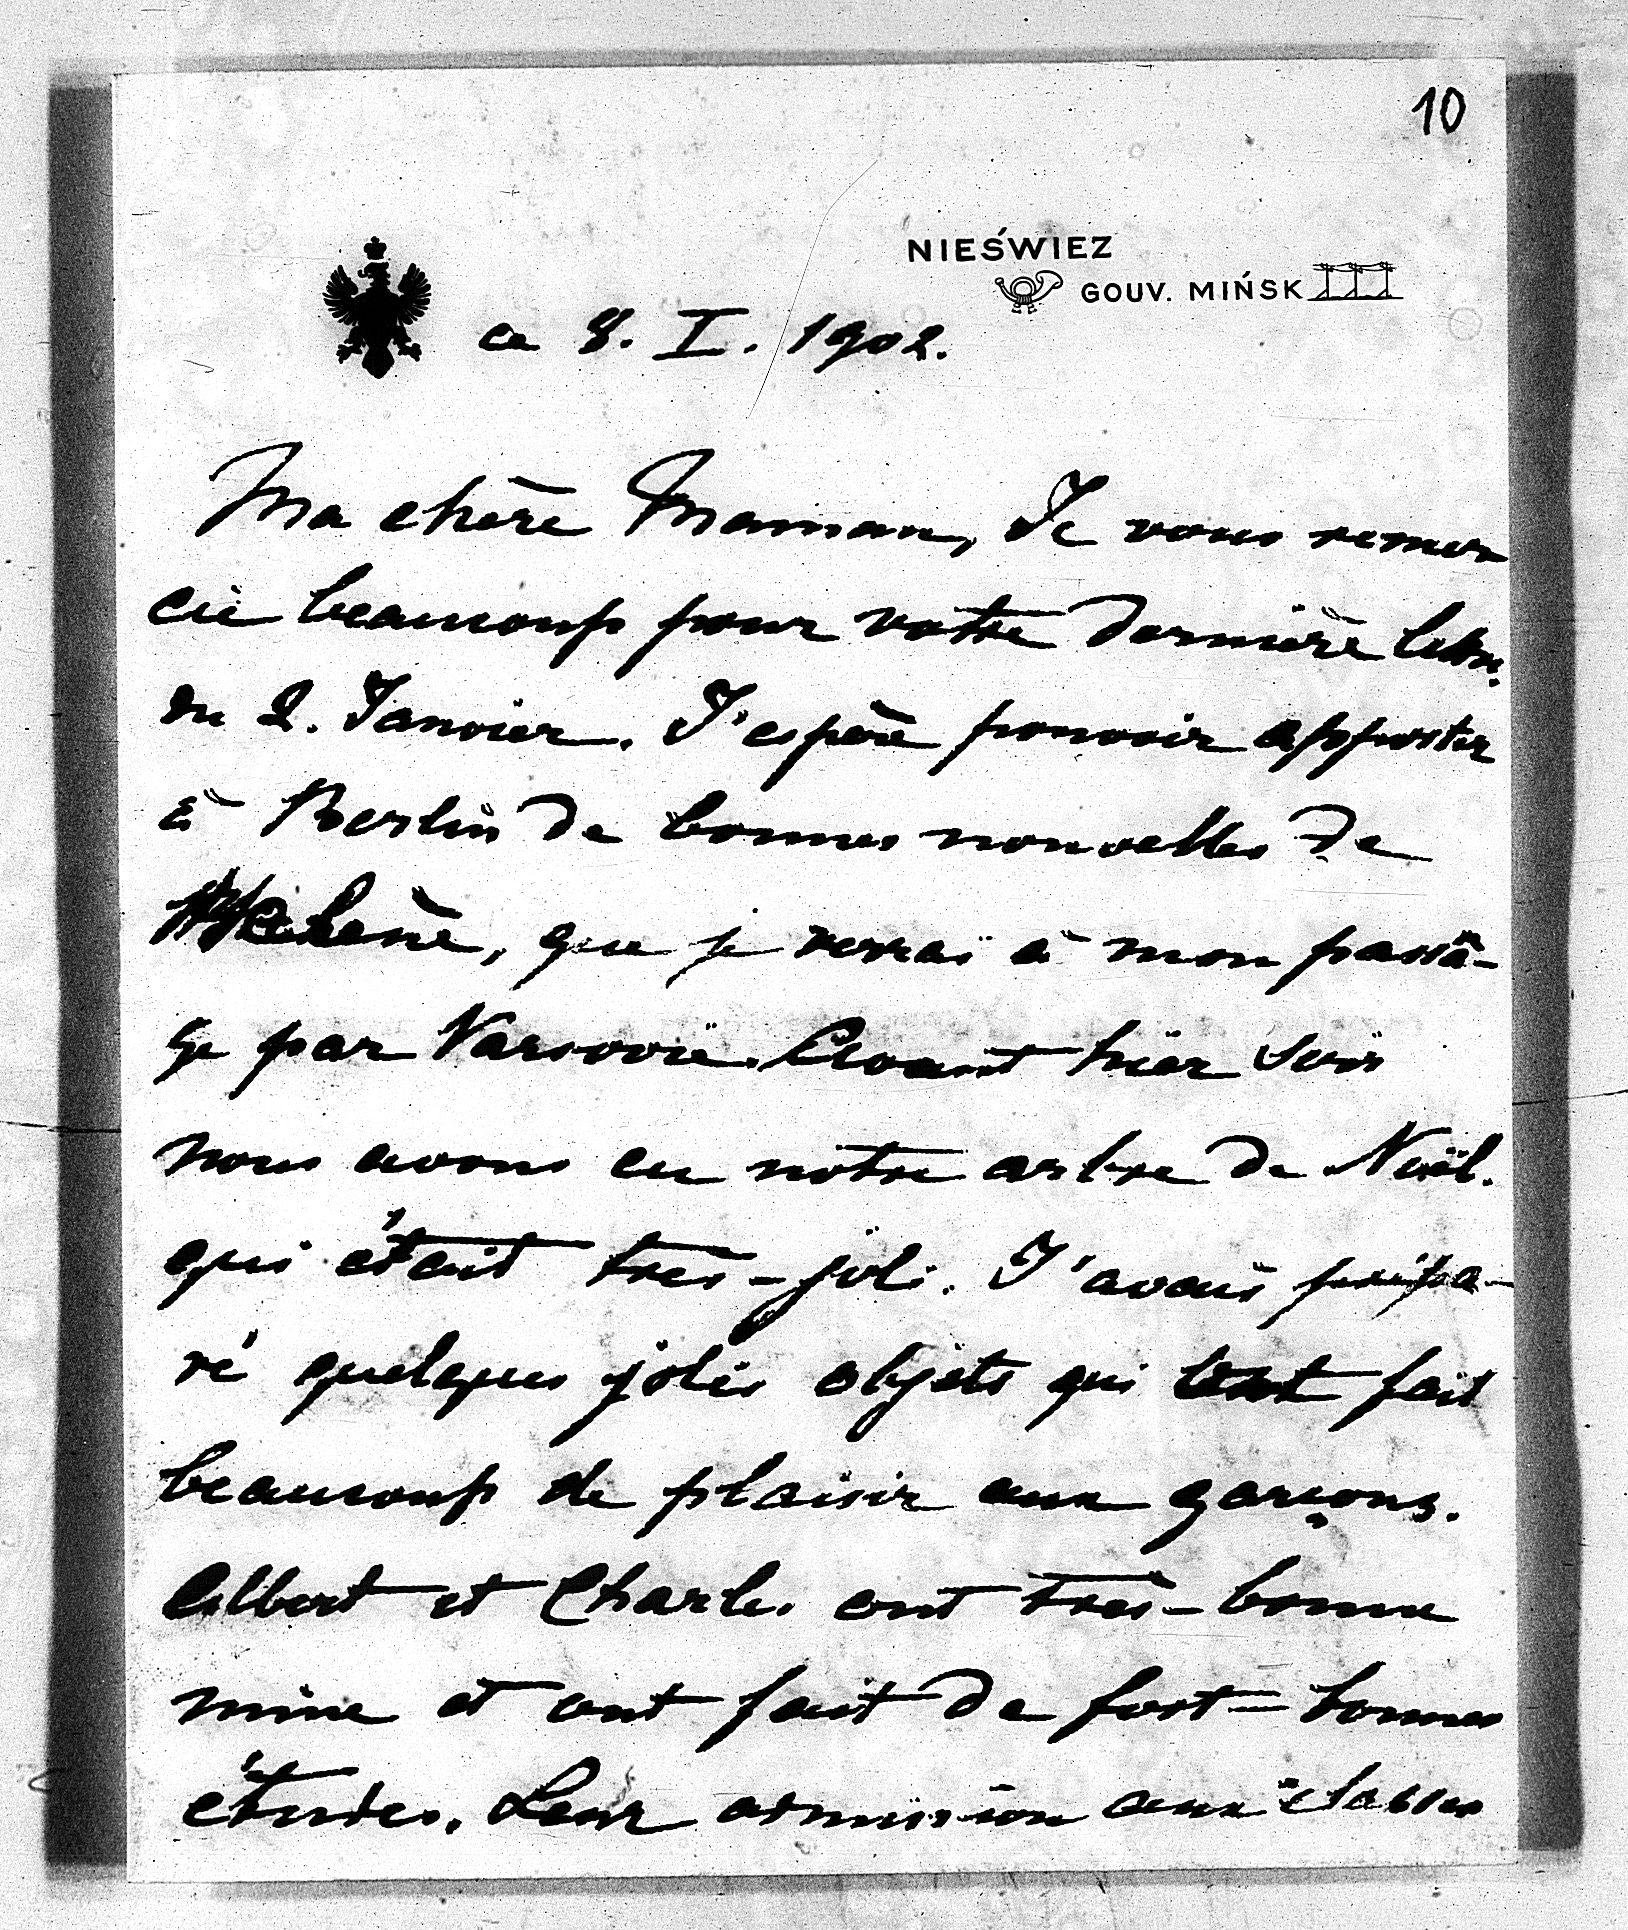 10
NIEŚWIEZ
GOUV. MIŃSK
ce 8. I. 1902.
Ma chère Maman, Je vous remer
cie beaucoup pour votre dernière lettre
du 2. Janvier. J'espère pouvoir apporter
à Berlin de bonnes nouvelles de
Helène, que je verrai à mon passa-
ge par Varsovie. Avant hier soir
nous avons eu notre arbre de Noël.
qui était très-joli. J'avais prépa-
ré quelques jolis objets qui ont fait
beaucoup de plaisir aux garçons.
Albert et Charles ont très-bonne
mine et ont fait de fort-bonnes
études. Leur admission aux classes